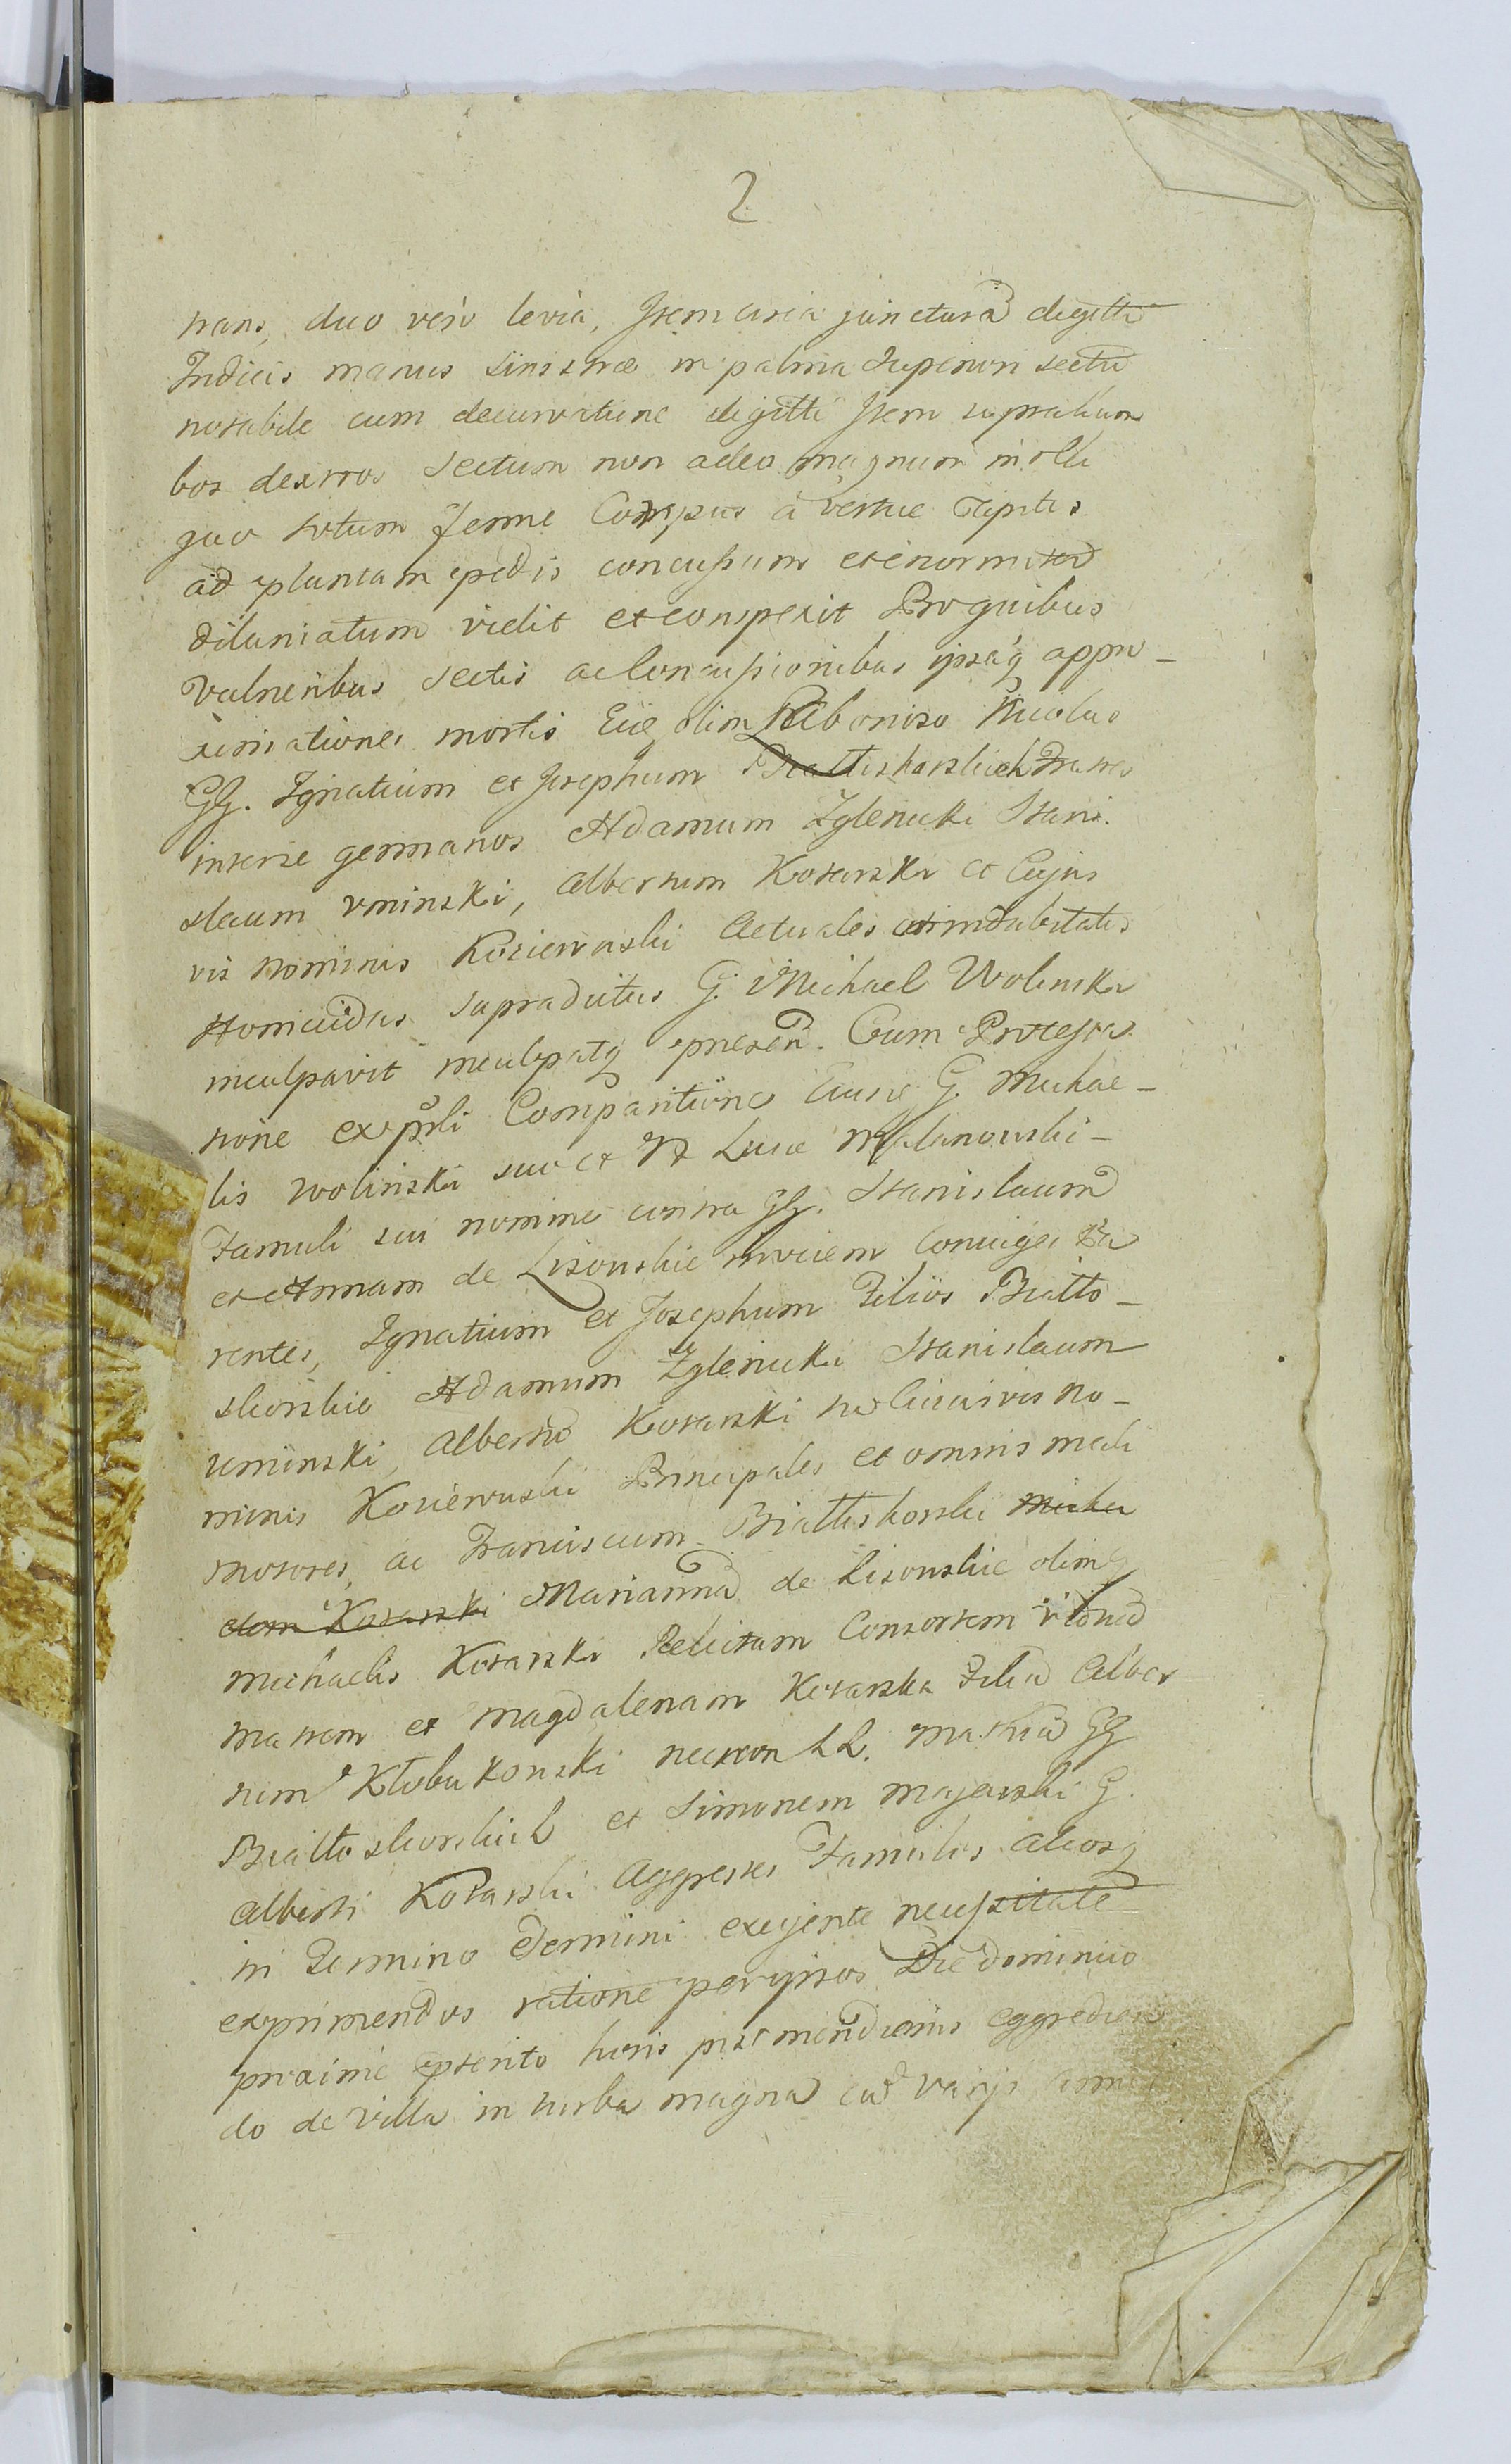 2
trans, duo vero levia, Item circa juncturã digitti
Indicis manus sinistræ in palma superiori sectũ
notabile cum decurvatione digitti Item supra lum
bos dextros sectum non adeo magnum in illi
quo totum ferme Corpus à vertice Capitis
ad plantam pedis concussum et enormiter
dilaniatum vidit et conspexit Pro quibus
Vulneribus sectis ac Concussionibus ipsaq appro-
ximatione mortis olim Nicolao
GG. Ignatium et Josephum Białłoskorskich Fratres
inter se germanos Adamum Zglenicki Stani.
slaum Uminski, Albertum Kosarski et Cujus
vis nominis Koziewuski Actuales et indubitatos
Homicidas supradictus G. Michael Wolinski
inculpavit inculpatq presen. Cum Protesta
tione ex psli Comparitione Eiusde G. Michae-
lis Wolinski suo et N Luce Malanowski-
Famuli sui nomine contra GG. Stanislaum
et Annam de Lisowskie invicem Coniuges Pa
rentes, Ignatium et Josephum Filios Białło-
skorskie Adamum Zglenicki Stanislaum
Uminski, Albertũ Kosarski et Cuiusvis no-
minis Koziewuski Principales et omnis mali
motores, ac Franciscum Białłoskorski Micha
elem Kosarski Mariannã de Lisowskie olim G
Michaelis Kosarski Relictam Consortem viduã
Matrem et Magdalenam Kosarska Filiã Alber
tum Kłobukowski necnon LL. Mathiã GG
Białłoskorskich et Simonem Majewski G.
Alberti Kosarski Aggresses Famulos aliosq
in Termino Termini exigente necessitate
exprimendos ratione per ipsos Die dominico
proxime pterito horis pis meridianis eggredien
do de Villa in turba magna cũ varijs armis